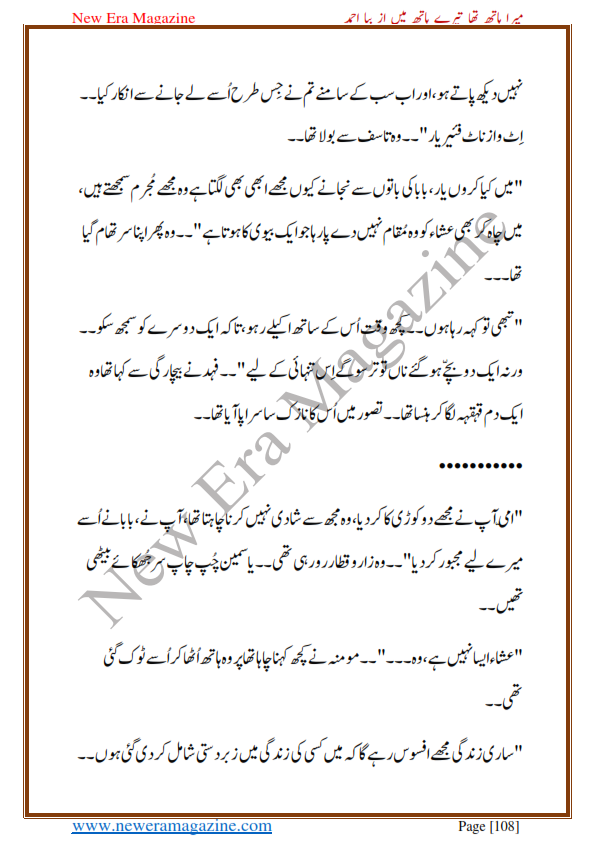 New Era Magazine
میرا ہاتھ تھا تیرے ہاتھ میں از ببا احمد
نہیں دیکھ پاتے ہو، اور اب سب کے سامنے تم نے جس طرح اُسے لے جانے سے انکار کیا۔۔
اِٹ واز ناٹ فئیر یار"۔۔ وہ تاسف سے بولا تھا۔۔
"میں کیا کروں یار، بابا کی باتوں سے نجانے کیوں مجھے ابھی بھی لگتا ہے وہ مجھے مُجرم سمجھتے ہیں،
میں چاہ کر بھی عشاء کو وہ مُقام نہیں دے پا رہا جو ایک بیوی کا ہوتا ہے"۔۔ وہ پھر اپنا سر تھام گیا
تھا۔۔۔
"تبھی تو کہہ رہا ہوں۔۔ کچھ وقت اُس کے ساتھ اکیلے رہو، تاکہ ایک دوسرے کو سمجھ سکو۔۔
ورنہ ایک دو بچّے ہو گئے ناں تو ترسو گے اِس تنہائی کے لیے"۔۔ فہد نے بیچارگی سے کہا تھا وہ
ایک دم قہقہہ لگا کر ہنسا تھا۔۔ تصور میں اُس کا نازک سا سراپا آیا تھا۔۔
•••••••••••
"امی آپ نے مجھے دو کوڑی کا کر دیا، وہ مجھ سے شادی نہیں کرنا چاہتا تھا، آپ نے، بابا نے اُسے
میرے لیے مجبور کر دیا"۔۔ وہ زار و قطار رو رہی تھی۔۔ یاسمین چُپ چاپ سر جُھکائے بیٹھی
تھیں۔۔
"عشاء ایسا نہیں ہے، وہ۔۔۔"۔۔ مومنہ نے کچھ کہنا چاہا تھا پر وہ ہاتھ اُٹھا کر اُسے ٹوک گئی
تھی۔۔
"ساری زندگی مجھے افسوس رہے گا کہ میں کسی کی زندگی میں زبردستی شامل کر دی گئی ہوں۔۔
New Era Magazine
www.neweramagazine.com
Page [108]